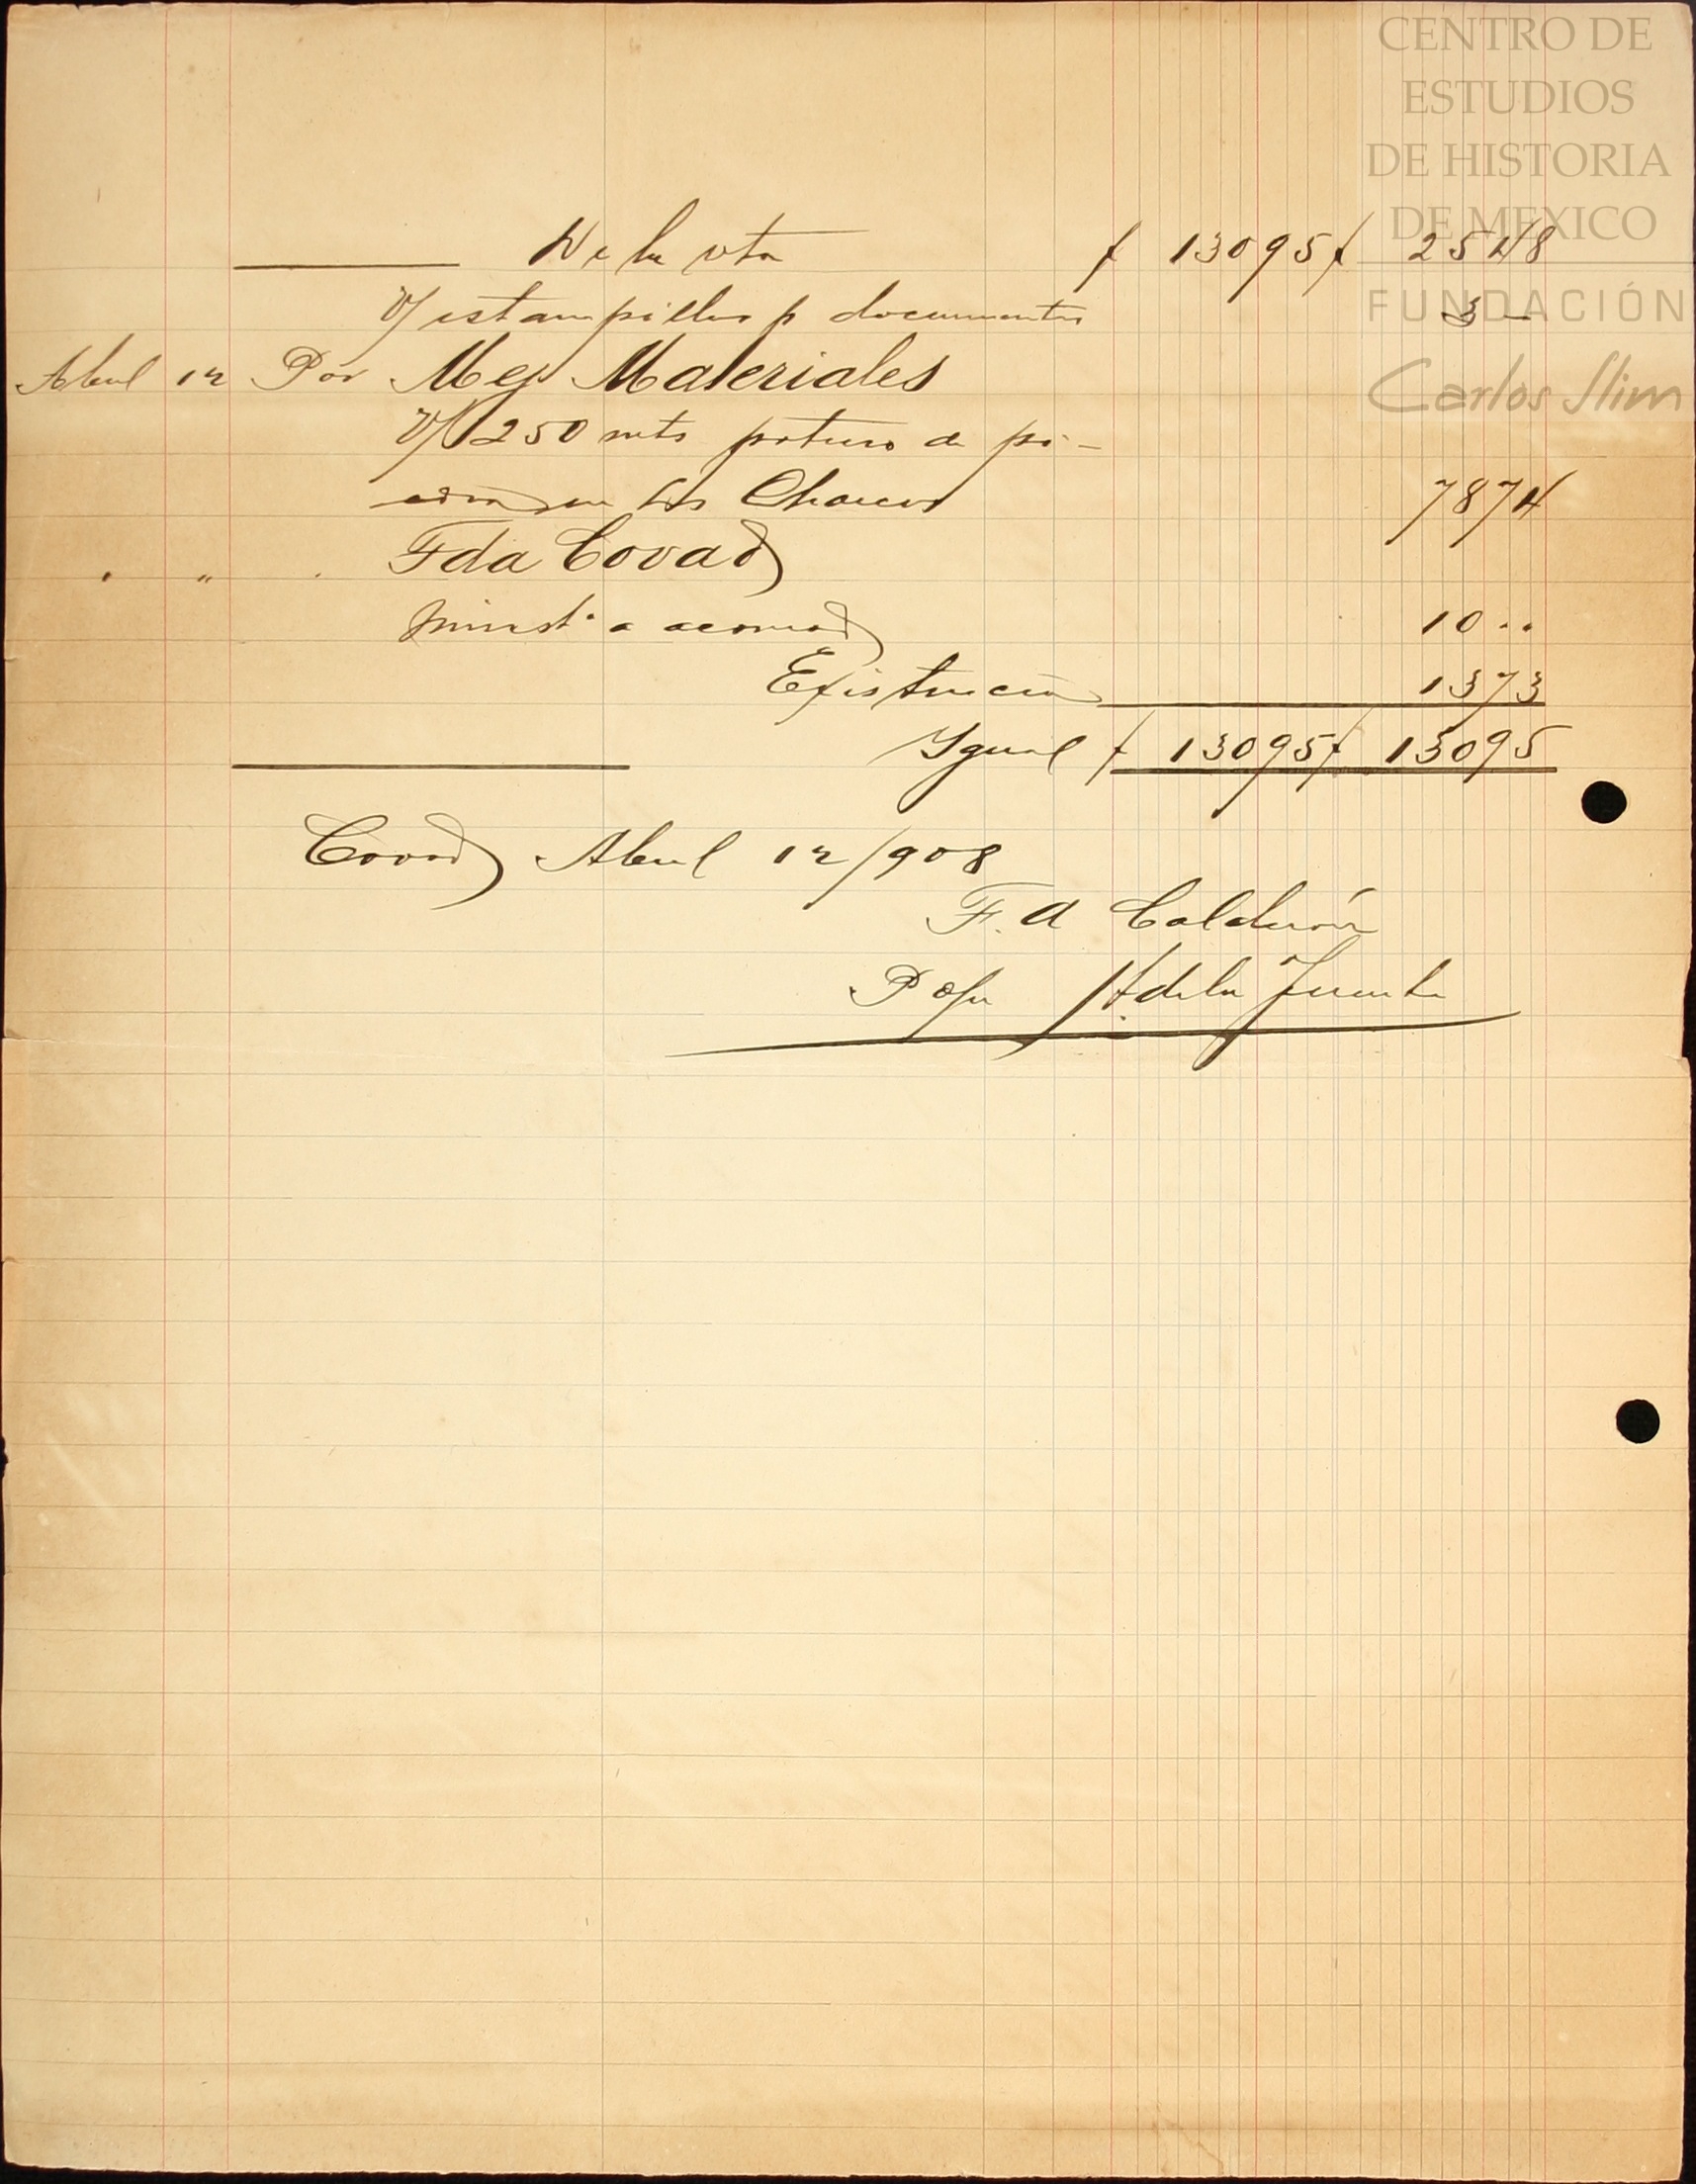 CENTRO DE
ESTUDIOS
DE HISTORIA
DE MEXICO
FUNDACIÓN
Carlos Slim
De la vta $ 13095 $ 2548
V/ estampillas p documentos 3 —
Abril 12 Por Mej Materiales
V/ 250 mts potrero de pi-
en los Charcos 7874
" " Fda Covad
Minist.ª a acomod 10 ..
Existencia 1373
Ygual $ 13095 $ 13095
Covad Abril 12/908
F. A Calderón
P de la Fuente